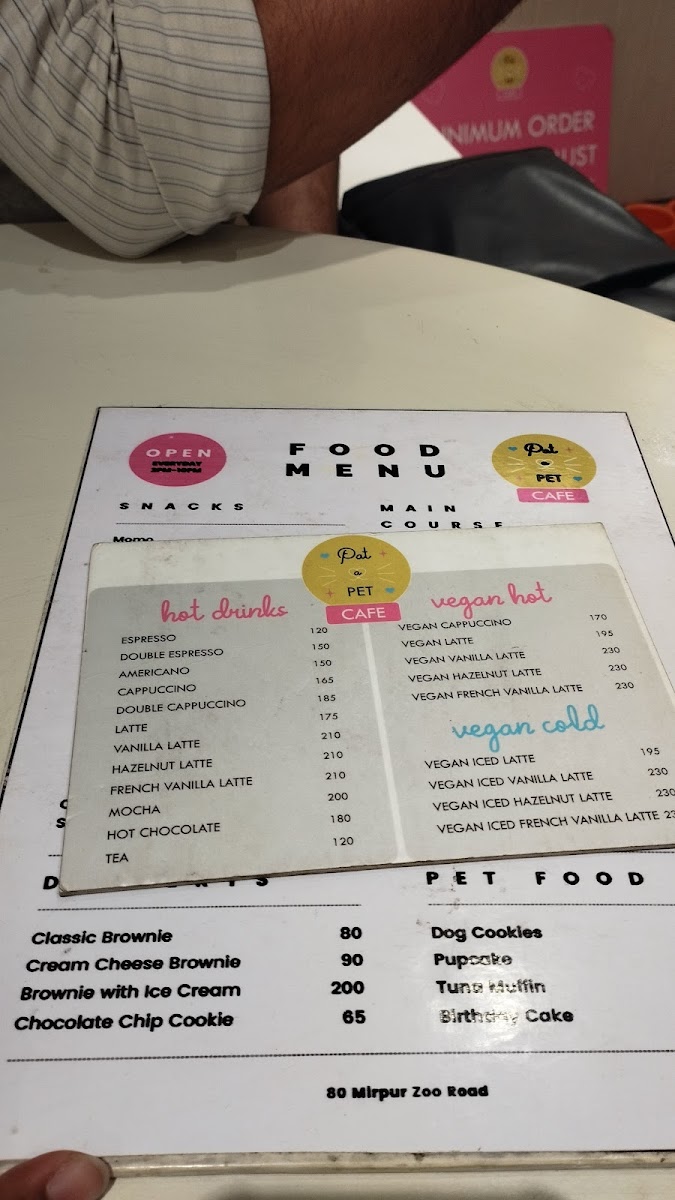 NIMUM ORDER
UST
OPEN
EVERYDAY
2PM-10PM
FOOD
MENU
Pat
a
PET
CAFE
SNACKS
MAIN
COURSE
Momo
Pat
a
PET
CAFE
hot drinks
ESPRESSO 120
DOUBLE ESPRESSO 150
AMERICANO 150
CAPPUCCINO 165
DOUBLE CAPPUCCINO 185
LATTE 175
VANILLA LATTE 210
HAZELNUT LATTE 210
FRENCH VANILLA LATTE 210
MOCHA 200
HOT CHOCOLATE 180
TEA 120
vegan hot
VEGAN CAPPUCCINO 170
VEGAN LATTE 195
VEGAN VANILLA LATTE 230
VEGAN HAZELNUT LATTE 230
VEGAN FRENCH VANILLA LATTE 230
vegan cold
VEGAN ICED LATTE 195
VEGAN ICED VANILLA LATTE 230
VEGAN ICED HAZELNUT LATTE 230
VEGAN ICED FRENCH VANILLA LATTE 23
Classic Brownie 80
Cream Cheese Brownie 90
Brownie with Ice Cream 200
Chocolate Chip Cookie 65
PET FOOD
Dog Cookies
Pupcake
Tuna Muffin
Birthday Cake
80 Mirpur Zoo Road